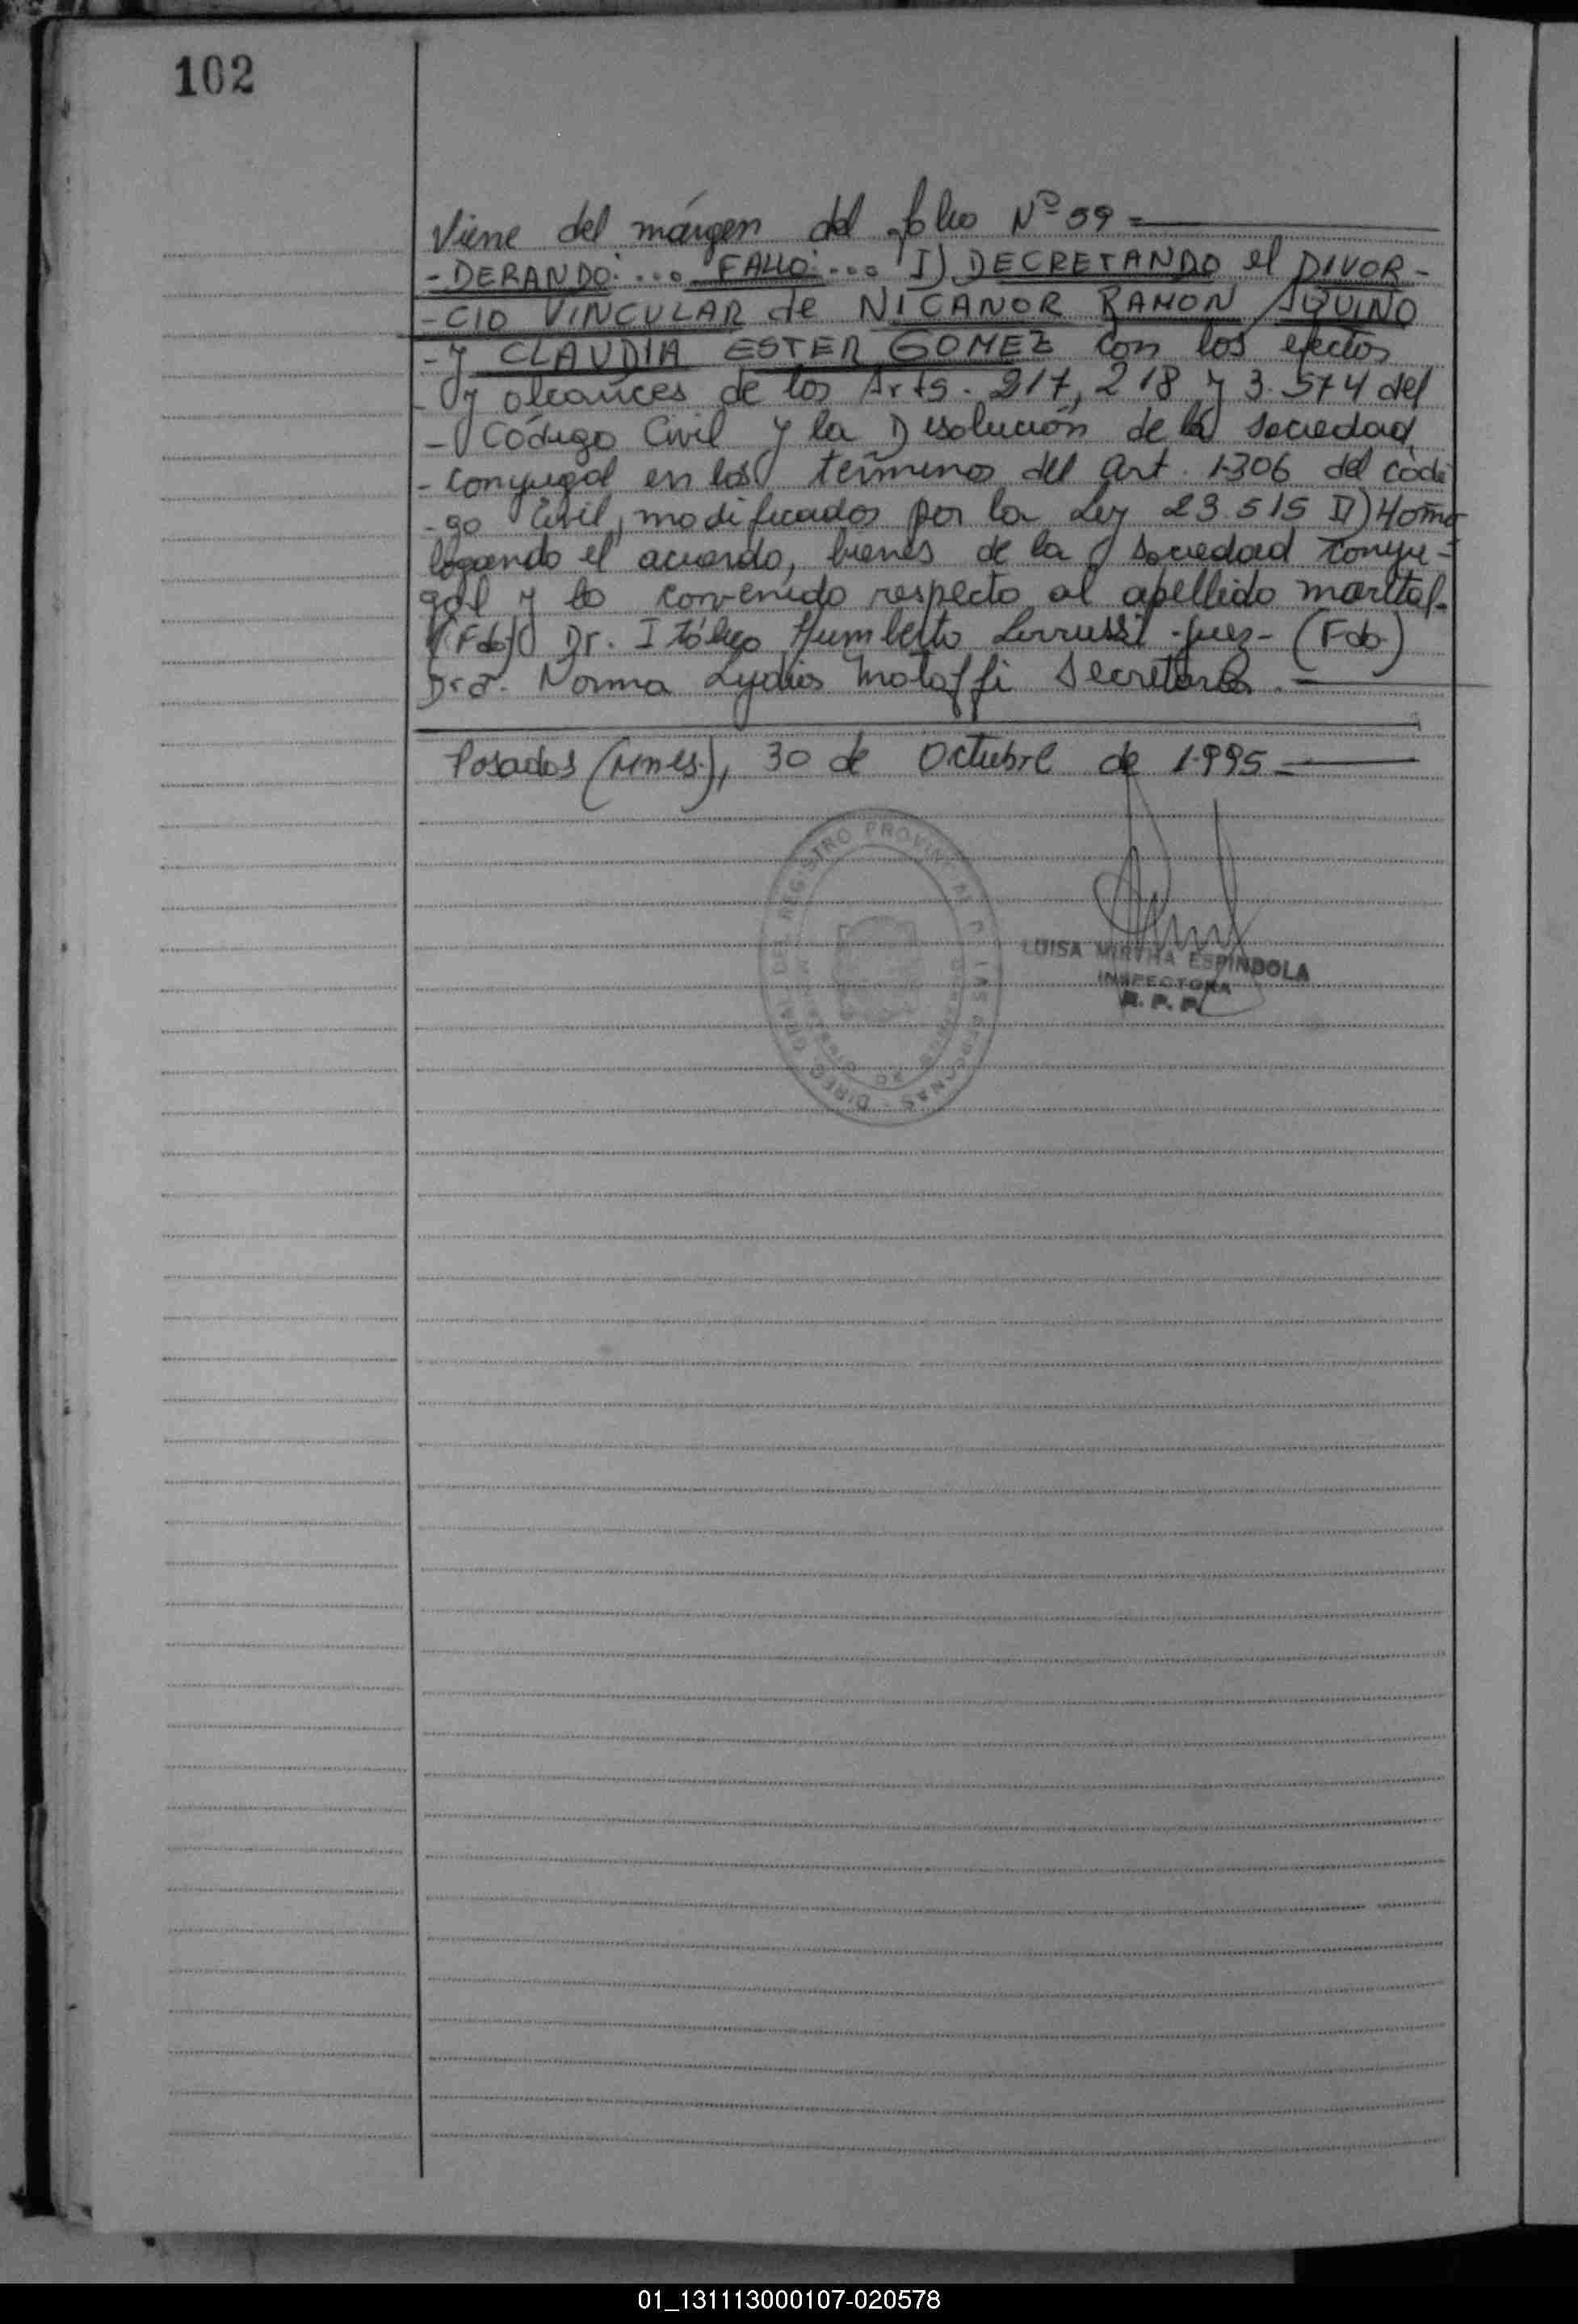 102
Viene del márgen del folio Nº 59 =
-DERANDO: ... FALLO: ... I) DECRETANDO el DIVOR-
-CIO VINCULAR de NICANOR RAMON AQUINO
-y CLAUDIA ESTER GOMEZ con los efectos
- y alcances de los Arts. 217, 218 y 3.574 del
- Código Civil y la Disolución de la Sociedad
- conyugal en los términos del art. 1.306 del Códi
-go Civil, modificados por la Ley 23.515 II) Homo
logando el acuerdo, bienes de la sociedad conyu-
gal y lo convenido respecto al apellido marital.
(Fdo) Dr. Itálico Humberto -Juez- (Fdo)
Dra. Norma Lydia Mataffi Secretaria.
Posadas (Mnes.), 30 de Octubre de 1.995 =
DIREC. GRAL. DEL REGISTRO PROVINCIAL DE LAS PERSONAS
LUISA MIRTHA ESPINDOLA
INSPECTORA
R. P. P.
01_131113000107-020578